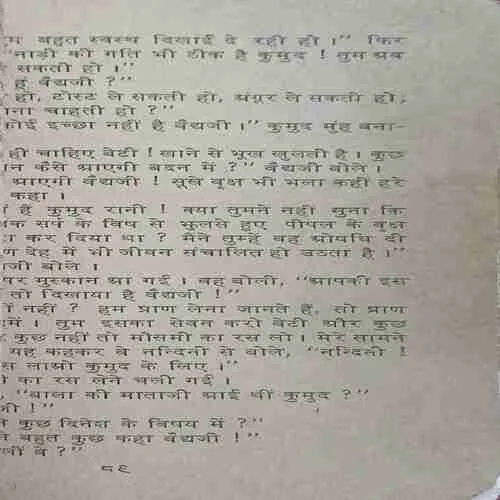 म बहुत स्वस्थ दिखाई दे रही हो ।” फिर
“नाड़ी की गति भी ठीक है कुमुद ! तुम अब
सकती हो ।”
हूं वैद्यजी ?”
हो, टोस्ट ले सकती हो, अंगूर ले सकती हो,
ाना चाहती हो ?”
कोई इच्छा नहीं है वैद्यजी ।” कुमुद मुंह बना-
ही चाहिए बेटी ! खाने से भूख खुलती है । कुछ
ान कैसे आएगी बदन में ?” वैद्यजी बोले ।
आएगी वैद्यजी ! सूखे वृक्ष भी भला कहीं हरे
कहा ।
हैं कुमुद रानी ! क्या तुमने नहीं सुना कि
क सर्प के विष से झुलसे हुए पीपल के वृक्ष
ा कर दिया था ? मैंने तुम्हें वह ओषधि दी
ण देह में भी जीवन संचालित हो उठता है ।”
जी बोले ।
पर मुस्कान आ गई । वह बोली, “आपकी इस
तो दिखाया है वैद्यजी !”
ों नहीं ? हम प्राण लेना जानते हैं, तो प्राण
हमें । तुम इसका सेवन करो बेटी और कुछ
कुछ नहीं तो मौसमी का रस लो । मेरे सामने
यह कहकर वे नन्दिनी से बोले, “नन्दिनी !
स लाओ कुमुद के लिए ।”
ी का रस लेने चली गई ।
, “बाला की माताजी आई थीं कुमुद ?”
जी !”
े कुछ दिनेश के विषय में ?”
े बहुत कुछ कहा वैद्यजी !”
लीं वे ?”
८९